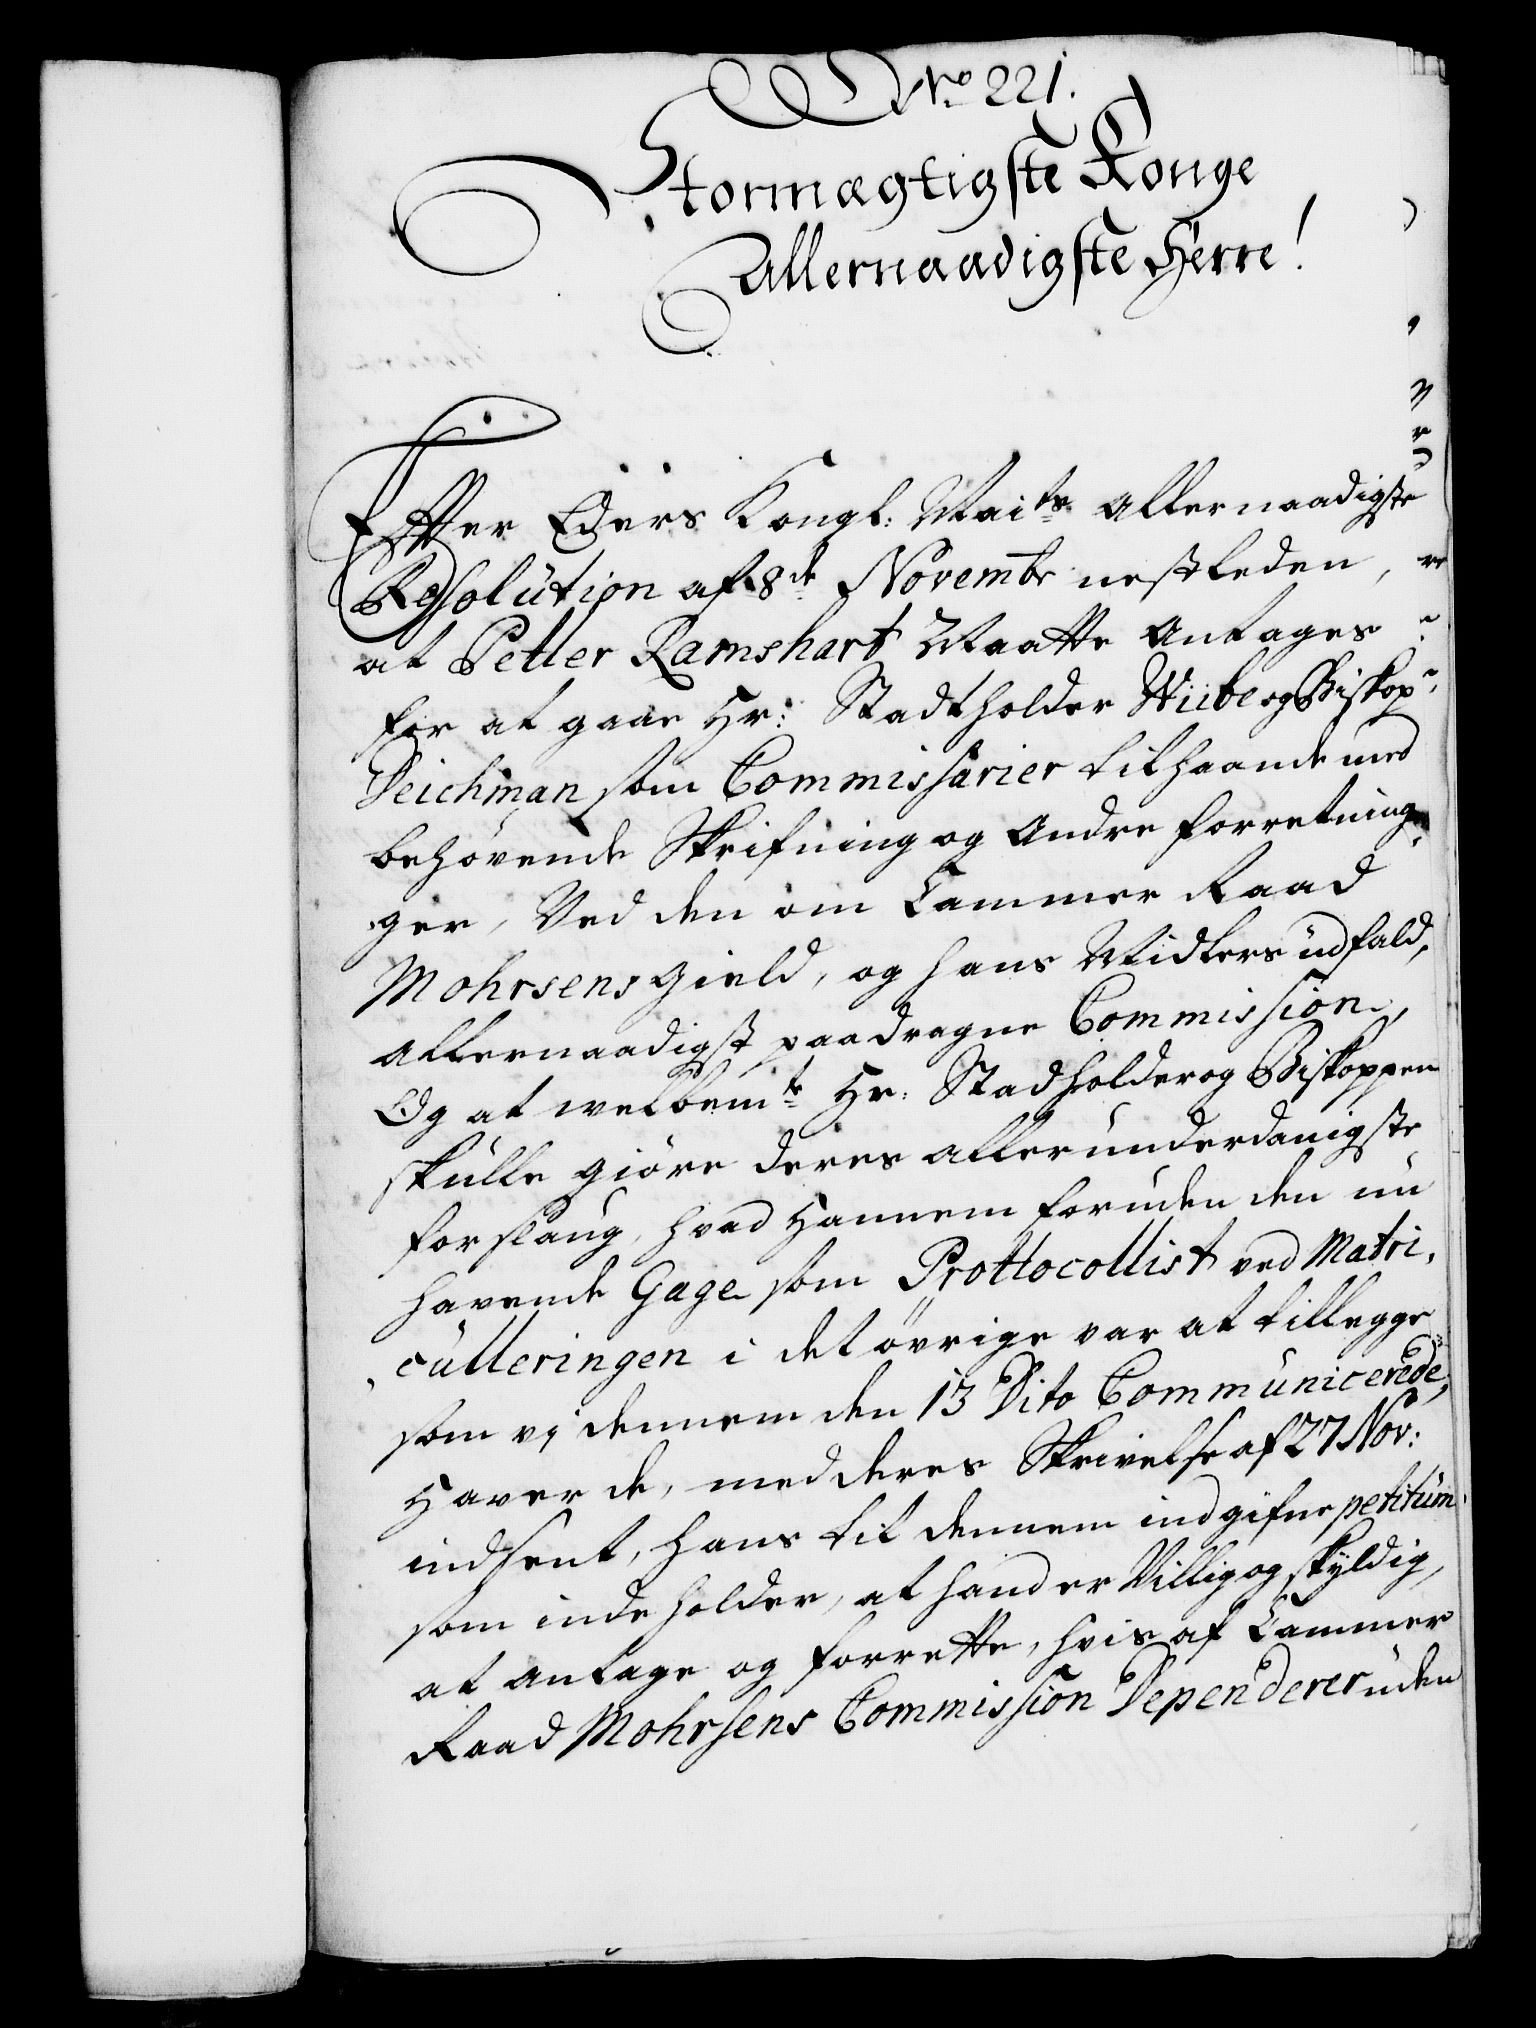 No 221.
Stormægtigste Konge
Allernaadigste Herre!
Efter Eders Kongl: Maits. Allernaadigste
Resolution af 8de Novembr nestleden,
at Petter Ramshart Maatte Antages
for at gaae Hr: Stadtholder Wiibe og Biskop
Deichman som Commissarier tilhaande med
behøvende Skrifning og Andre forretnin-
ger, Ved den om Cammer Raad
Mohrsens gield, og hans Midlers udfald,
allernaadigst paadragne Commission,
Og at welbemte Hr: Stadholder og Biskoppen
skulle giøre deres allerunderdanigste
forslaug, hvad Hannem foruden den nu
havende Gage som Prottocollist ved Matri-
culleringen i det øvrige var at tillegge
som vj dennem den 13 Dito Communicerede,
Haver de, med deres Skrivelse af 27 Nov:
indsent, hans til dennem indgifne petitum
som inde holder, at hand er Villig og skyldig,
at antage og forrette, hvis af Cammer
Raad Mohrsens Commission Dependerer uden